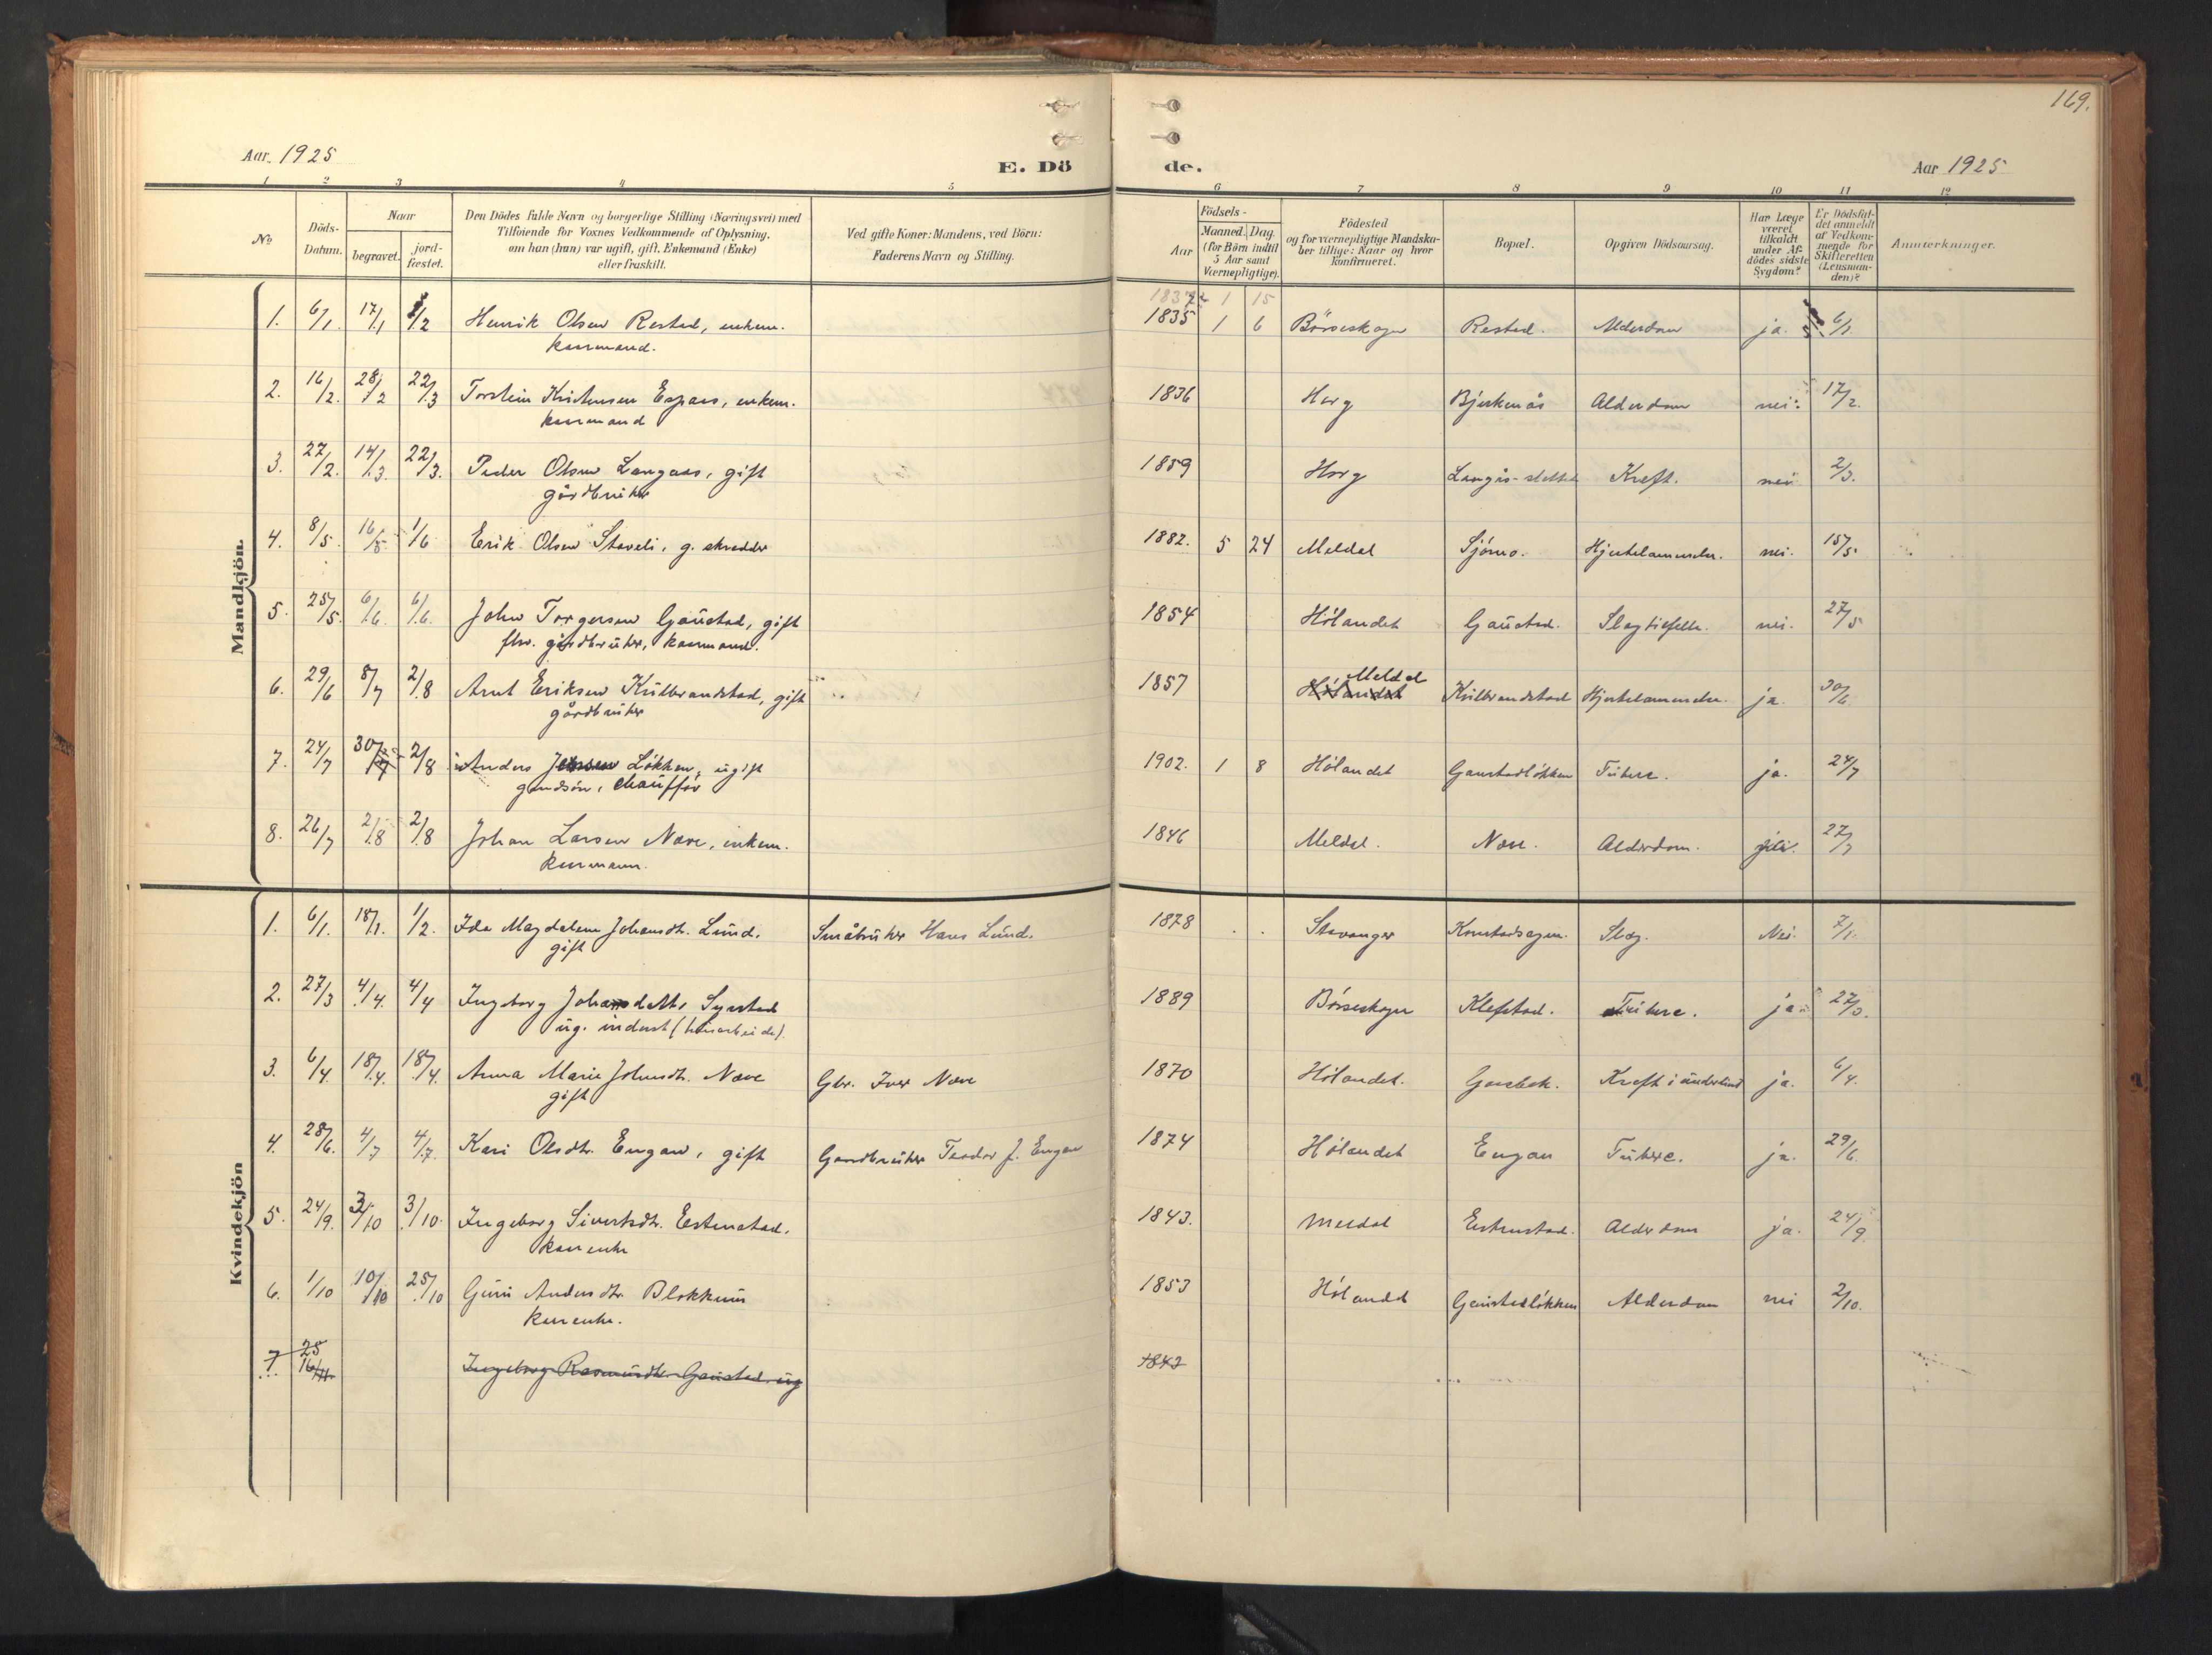 169.
Aar 1925
E. Dö de.
Aar 1925
1 2 3 4 5 6 7 8 9 10 11 12
No
Döds-Datum.
Naar
begravet.
jord-fæstet.
Den Dödes fulde Navn og borgerlige Stilling (Næringsvei) med
Tilföiende for Voxnes Vedkommende af Oplysning,
om han (hun) var ugift, gift, Enkemand (Enke)
eller fraskilt.
Ved gifte Koner: Mandens, ved Börn:
Faderens Navn og Stilling.
Födsels-
Aar
Maaned. Dag.
(for Börn indtil
5 Aar samt
Værnepligtige).
Födested
og for værnepligtige Mandska-
ber tillige: Naar og hvor
konfirmeret.
Bopæl.
Opgiven Dödsaarsag.
Har Læge
været
tilkaldt
under Af-
dödes sidste
Sygdom?
Er Dödsfal-
det anmeldt
af Vedkom-
mende for
Skifteretten
(Lensman-
den)?
Anmerkninger.
Mandkjön.
1 15
1. 6/1. 17/1 1/2 Henrik Olsen Rested, enkem. 1835 1 6 Börseskogn Rested. Alderdom ja. 6/1
kaarmand.
2. 16/2. 28/2 22/3 Torstein Kristensen Espaas, enkem. 1836 Horg Bjerkenås Alderdom nei. 17/2.
kaarmand
3. 27/2. 14/3. 22/3. Peder Olsen Langaas, gift 1859 Horg Langås-slettet Kreft. nei 2/3.
gårdbruker
4. 8/5. 16/5 1/6 Erik Olsen Staveli, g. skredder 1882. 5 24 Meldal Sjömo. Hjertelammelse. nei. 15/5
5. 25/5. 6/6. 6/6. John Torgersen Gaustad, gift 1854 Hölandet Gaustad. Slagtilfelle. nei. 27/5
fhv. gårdbruker, kaarmand.
6. 29/6 8/7 2/8 Arnt Eriksen Kulbrandstad, gift 1857 Hölandet Meldal Kulbrandstad Hjertelammelse. ja. 30/6.
gårdbruker
7. 24/7 30/7 2/8 Anders Jensen Lökken, ugift 1902. 1 8 Hölandet Gaustadlökken Tuberc. ja. 24/7
gaardsön, chaufför
8. 26/7 2/8 2/8 Johan Larsen Næve, enkem. 1846 Meldal. Næve. Alderdom. 27/7
kaarmann.
Kvindekjön
1. 6/1. 18/1. 1/2. Ida Magdalene Johansdt. Lund. Småbruker Hans Lund. 1878 Stavanger Slag. Nei. 7/1.
gift
2. 27/3 4/4. 4/4 Ingeborg Johansdatter Syrstad 1889 Börseskogn Klefstad. Tuberc. ja. 27/3.
ug. indest (husarbeide).
3. 6/4. 18/4. 18/4. Anna Marie Johnsdt. Næve Gbr. Iver Næve 1870 Hölandet. Gaasbak. Kreft i underlivet ja. 6/4.
gift
4. 28/6. 4/7 4/7. Kari Olsdtr. Engan, gift Gaardbruker Teodor J. Engan 1874 Hölandet Engan Tuberc. ja. 29/6.
5. 24/9. 3/10 3/10. Ingeborg Sivertsdt. Estenstad. 1843. Meldal Estenstad. Alderdom ja. 24/9
kaarenke
6. 1/10 10/10 25/10 Guru Andersdtr. Blokkum 1853 Hölandet Gaustadlökken Alderdom nei 2/10.
kaarenke.
7. 25 16/11. Ingeborg Rasmusdt. Gaustad. ug 1843